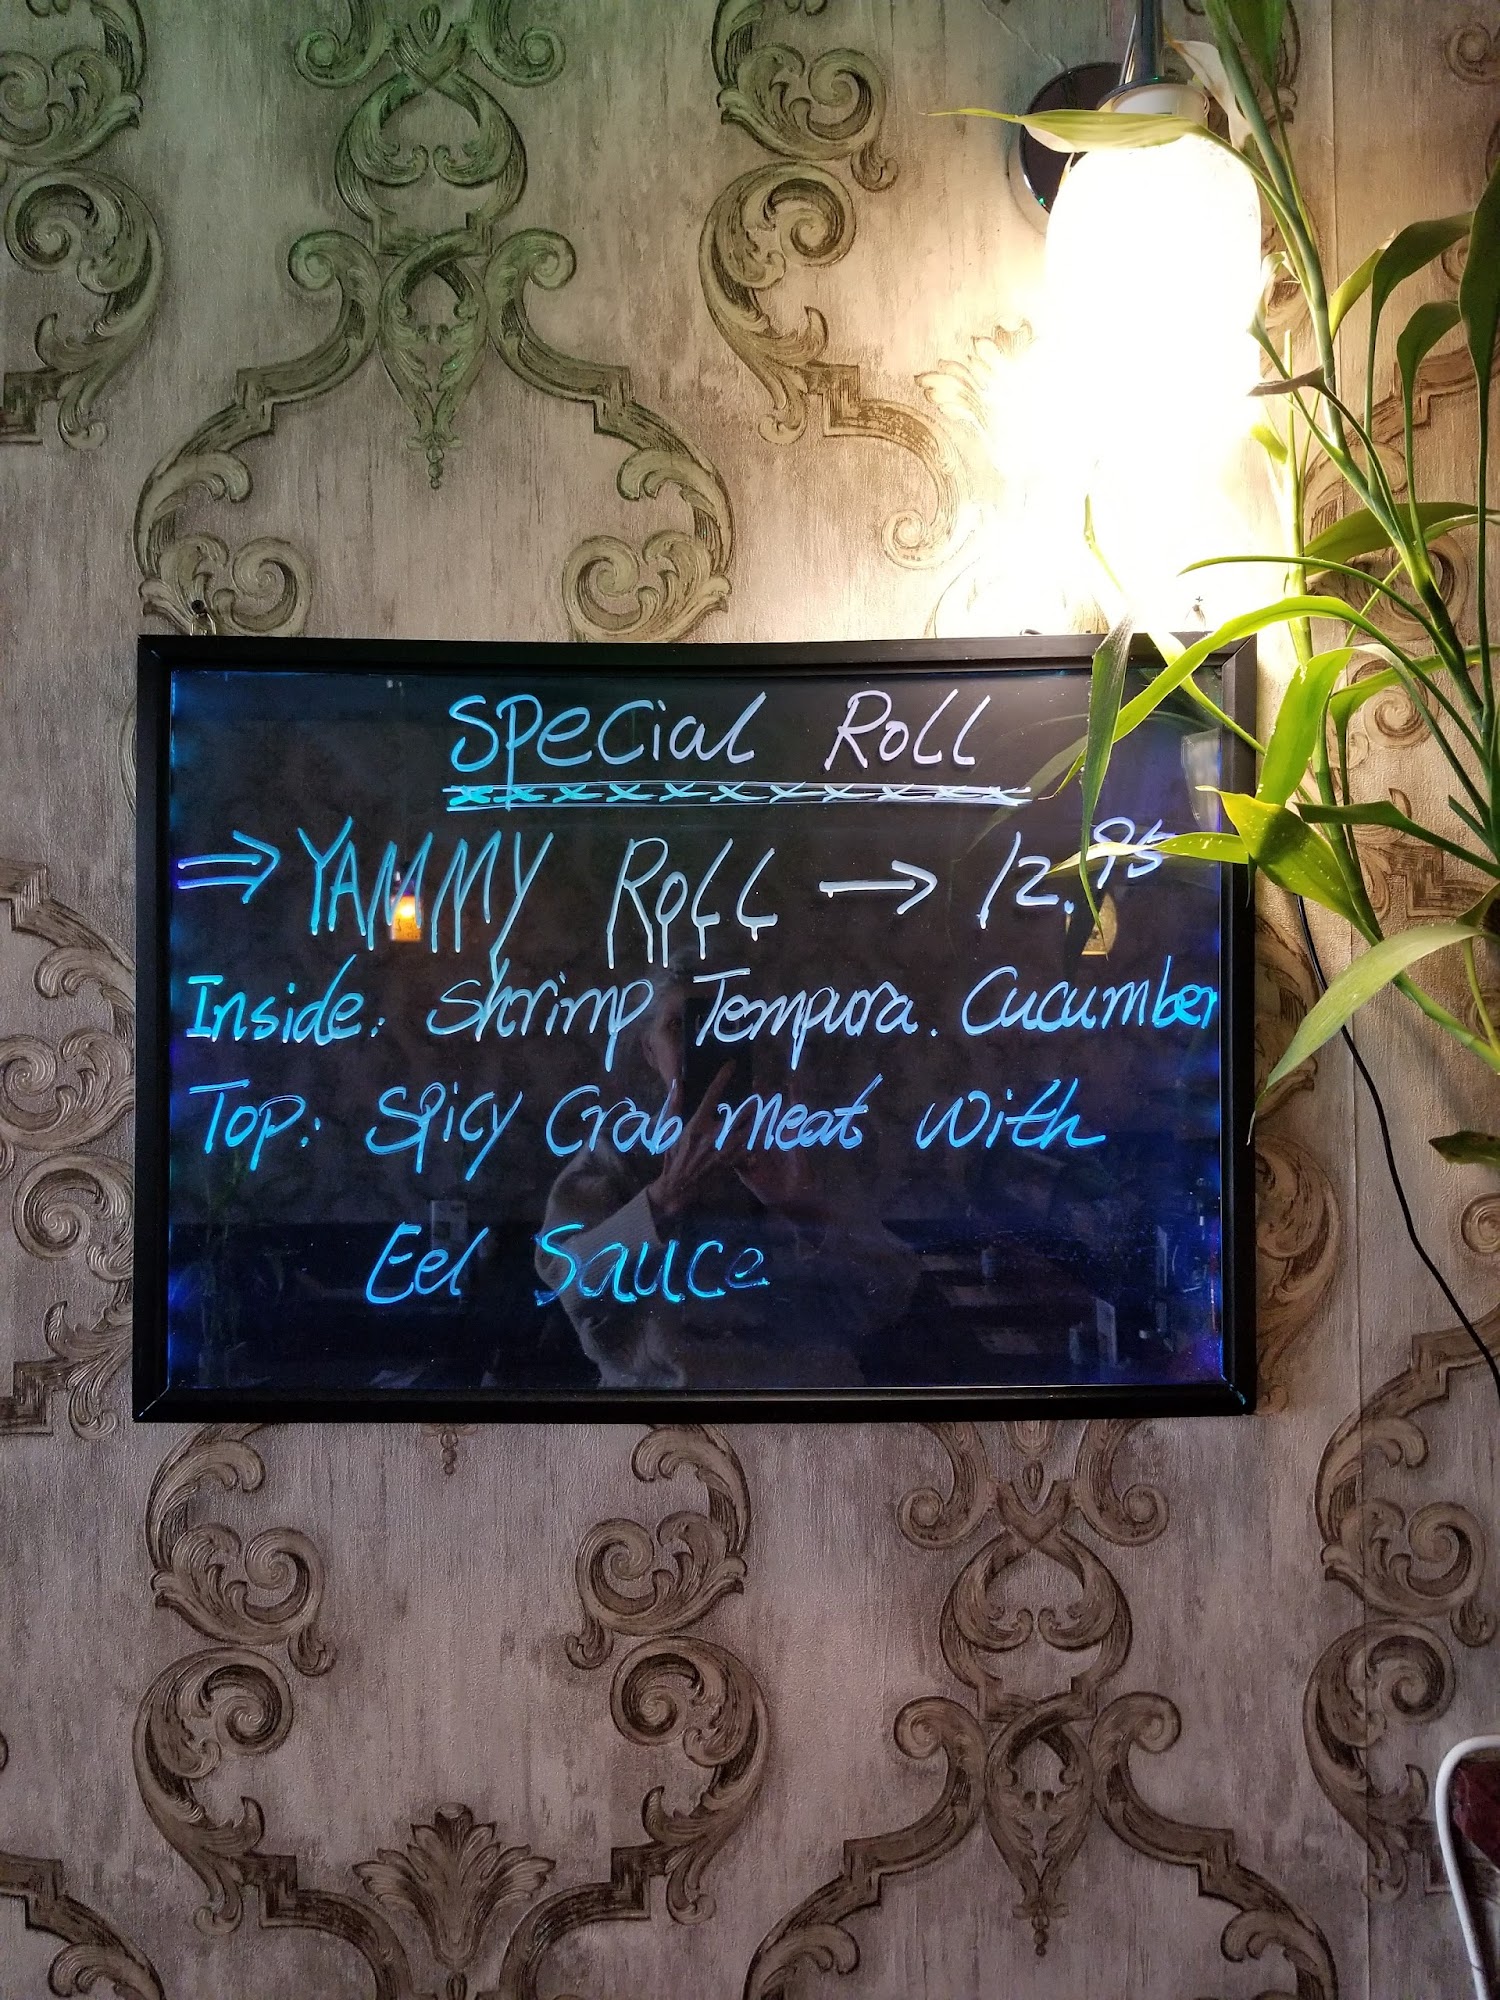 Special Roll
⇒ YAMMY ROLL → 12.95
Inside: Shrimp Tempura. Cucumber
Top: Spicy Crab meat with
Eel Sauce